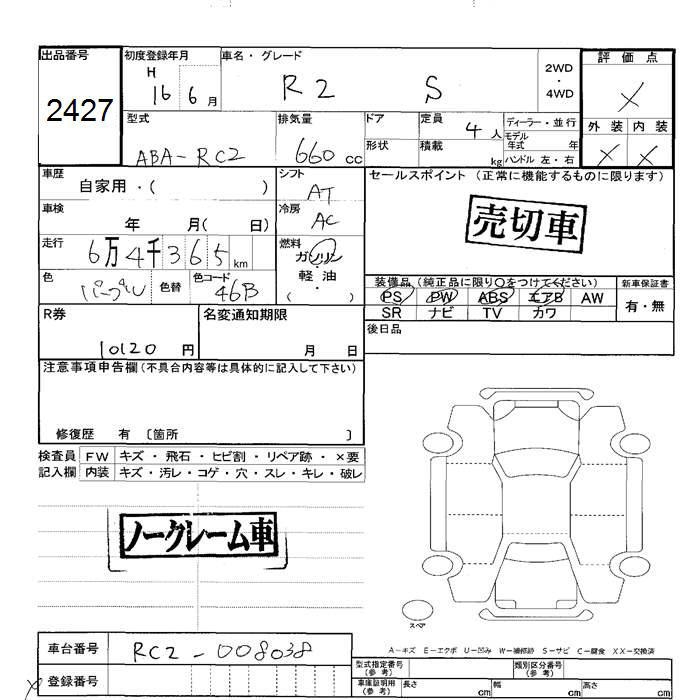 出品番号
2427
初度登録年月
H
16 6月
車名・グレード
R2 S
2WD
・
4WD
評価点
X
外装 内装
X X
型式
ABA-RC2
排気量
660 cc
ドア
定員
4人
形状
積載
kg
ディーラー・並行
モデル
年式 年
ハンドル 左・右
車歴
自家用・( )
シフト
AT
車検
年 月( 日)
冷房
AC
走行
6万4千365km
燃料
ガソリン
・
軽油
( )
色
パープル
色替
色コード
46B
セールスポイント (正常に機能するものに限ります)
売切車
装備品(純正品に限り〇をつけてください)
PS PW ABS エアB AW
SR ナビ TV カワ
新車保証書
有・無
後日品
R券
10120円
名変通知期限
月 日
注意事項申告欄(不具合内容等は具体的に記入して下さい)
修復歴 有 〔箇所 〕
検査員 FW キズ・飛石・ヒビ割・リペア跡・×要
記入欄 内装 キズ・汚レ・コゲ・穴・スレ・キレ・破レ
ノークレーム車
スペア
A-キズ E-エクボ U-凹み W-補修跡 S-サビ C-腐食 XX-交換済
車台番号 RC2-008038
登録番号
型式指定番号
(参考)
類別区分番号
(参考)
車庫証明用
(参考)
長さ cm 幅 cm 高さ cm